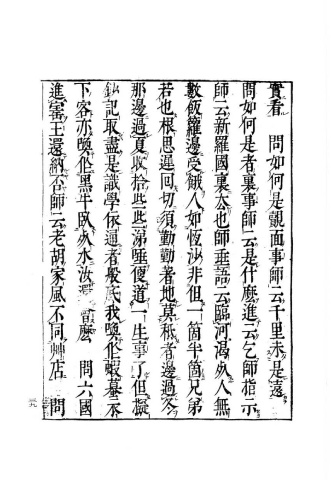 實看　問如何是覿面事師云千里未是遠
問如何是者裏事師云是什麼進云乞師指示
師云新羅國裏太也師垂語云臨河渴死人無
數飯籮邊受餓人如恆沙非但一箇半箇兄弟
若也根思遲回切須勤勤著地莫秖者邊過冬
那邊過夏收拾些些涕唾便道一生事了但擬
鈔記取盡是識學依通者般底我喚作蝦蟇禾
下客亦喚作黑牛臥死水汝還會麼　問六國
進寶王還納否師云老胡家風不同艸店　問